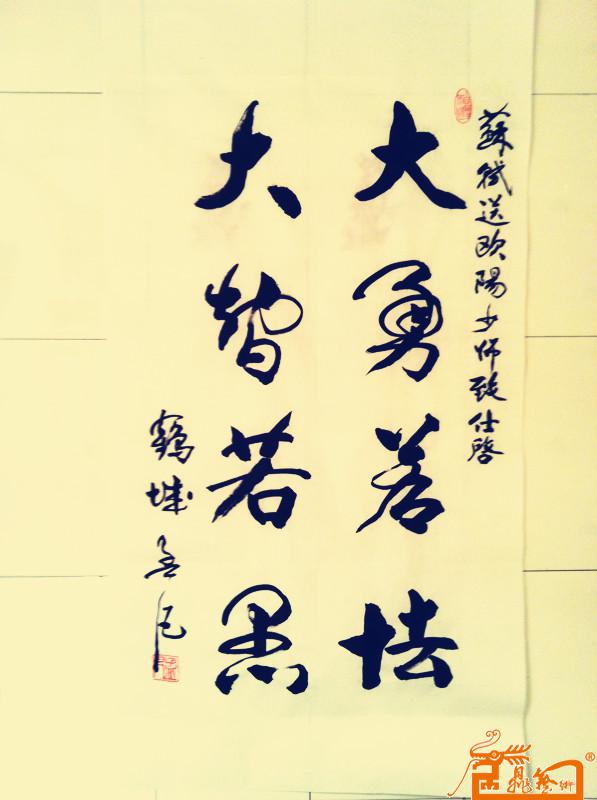 蘇軾送欧陽少師致仕啓
大勇若怯
大智若愚
鶴城